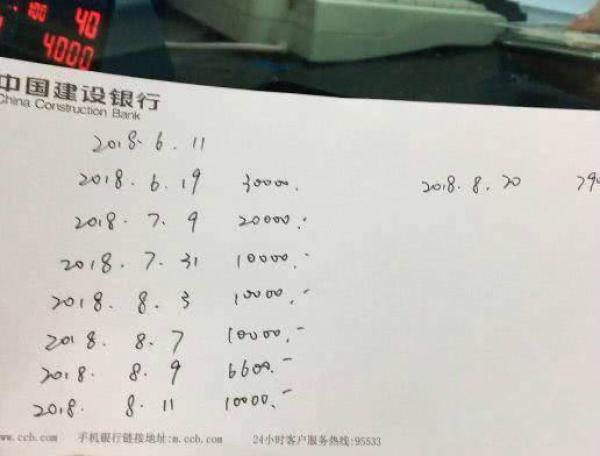 100 40
4.000
中国建设银行
China Construction Bank
2018.6.11
2018.6.19 30000.
2018.8.20
2018.7.9 20000.-
2018.7.31 10000.-
2018.8.3 10000.-
2018.8.7 10000.-
2018.8.9 6600.-
2018.8.11 10000.-
www.ccb.com 手机银行链接地址:m.ccb.com 24小时客户服务热线:95533